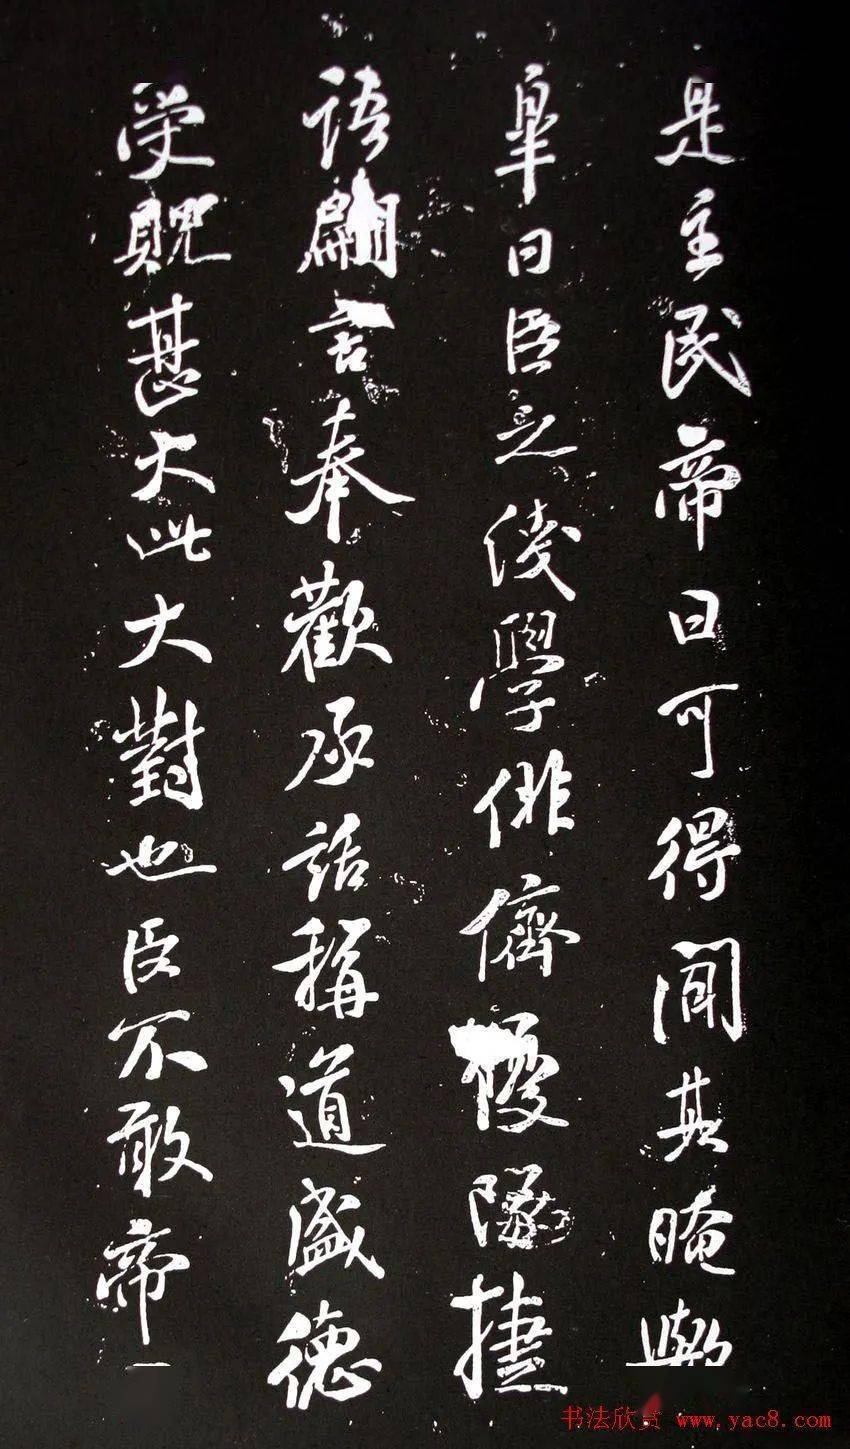 是主民帝曰可得聞其晻歟
皐曰臣之淺學俳儕優隊捷
語翩言奉歡承話稱道盛德
受貺甚大此大對也臣不敢帝
书法欣赏 www.yac8.com